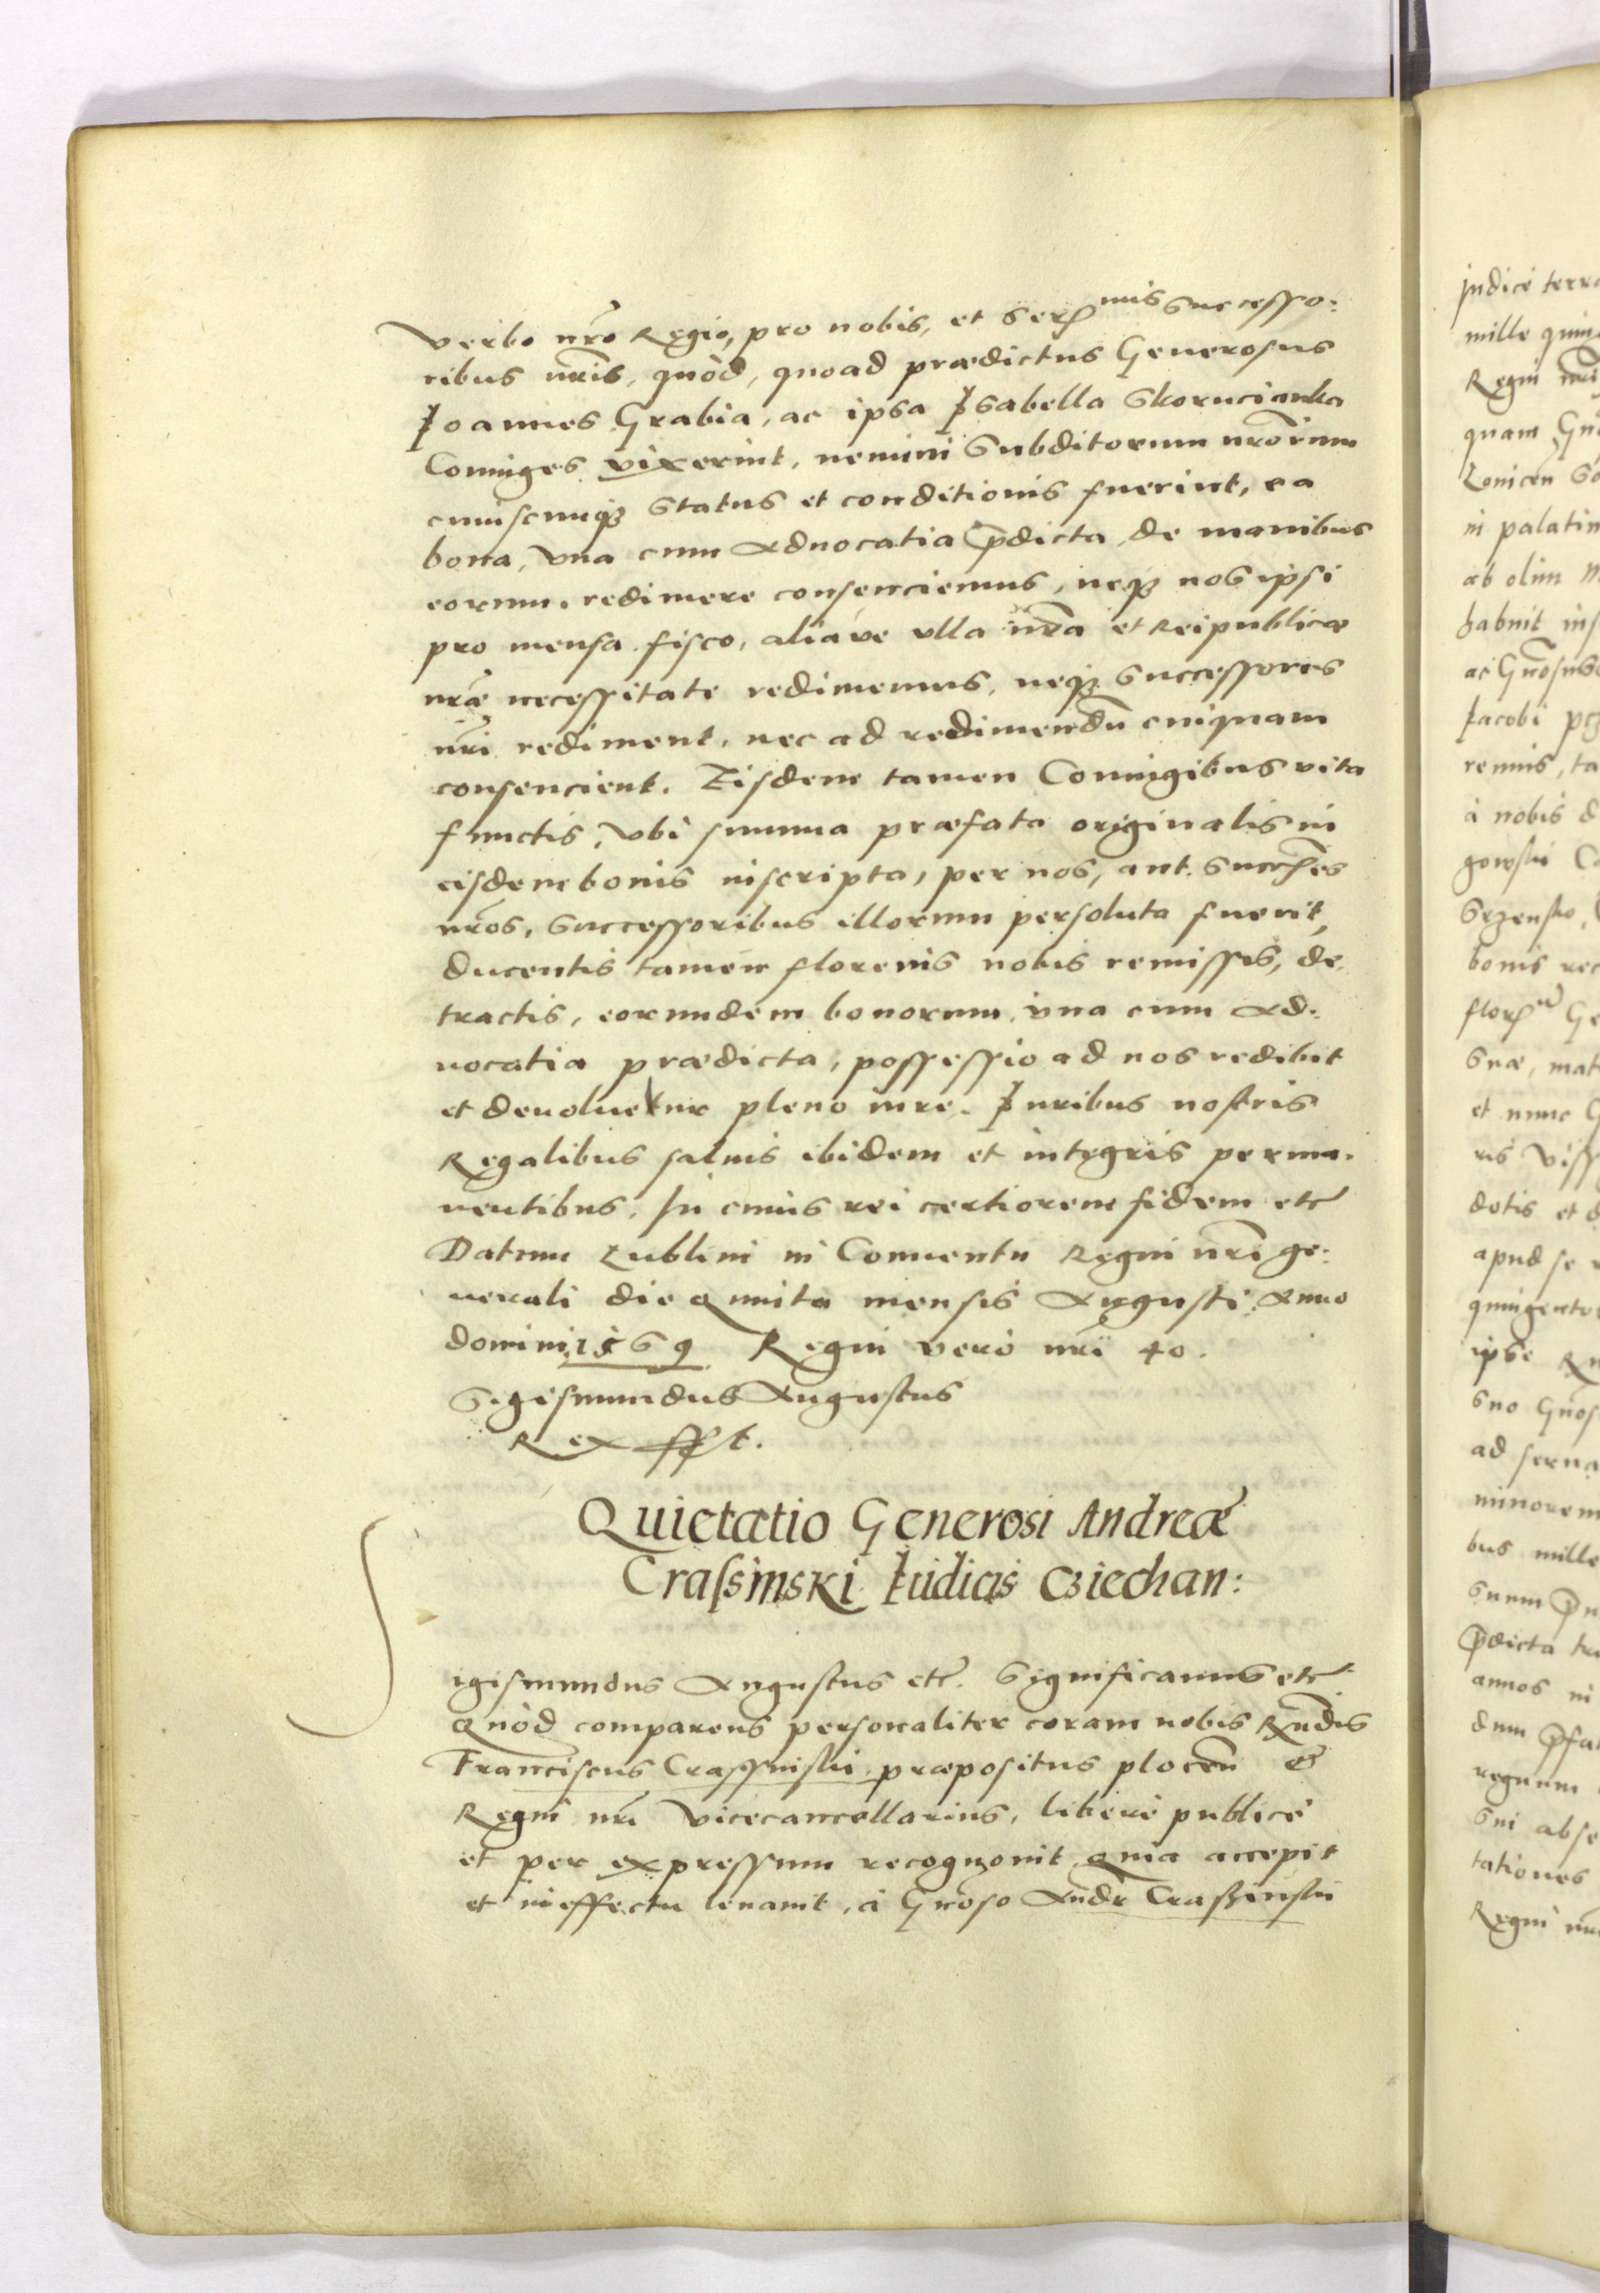 verbo nr̃o Regio, pro nobis, et Ser mis Successo:
ribus nr̃is, quòd, quoad prædictus Generosus
Joannes Grabia, ac ipsa Jsabella Skorucianka
Coniuges vixerint, nemini Subditorum nr̃orum
cuiuscunqꝫ Status et conditionis fuerint, ea
bona, vna cum Aduocatia p̃dicta, de manibus
eorum, redimere consenciemus, neqꝫ nos ipsi
pro mensa, fisco, aliáve vlla nr̃a et Reipublicæ
nr̃æ necessitate redimemus, neqꝫ Successores
nr̃i rediment, nec ad redimendũ cuiquam
consencient. Eisdem tamen Coniugibus vita
functis, vbi summa præfata originalis in
eisdem bonis inscripta, per nos, aut Succ̃es
nr̃os, Successoribus illorum persoluta fuerit,
ducentis tamen florenis nobis remissis, de:
tractis, eorundem bonorum, vna cum Ad:
uocatia prædicta, possessio ad nos redibit
et deuoluetur pleno iure. Juribus nostris
Regalibus saluis ibidem et integris perma:
nentibus. In cuius rei certiorem fidem etc̃
Datum Lublini in Conuentu Regni nr̃i ge:
nerali die Quinta mensis Augusti Anno
domini 1569 Regni verò nr̃i 40.
Sigismundus Augustus
Rex sspt.
Quietatio Generosi Andreæ
Crassinski Iudicis Cziechan:
S
igismundus Augustus etc̃. Significamus etc̃
Quòd comparens personaliter coram nobis Rũdis
Franciscus Crassinski præpositus plocen̄ &
Regni nr̃i Vicecancellarius, liberè publicè
et per expressum recognouit Quia accepit
et in effectu leuauit, à Gnoso Andr Craszinski
judice terra
mille quin
Regni nr̃i
quam
in palatin
ab olim
habuit ins
Jacobi
remus, ta
à nobis d
bonis rec
et nunc
dotis et d
apud se
quingento
ipse
suo
ad serua
minorem
bus mille
p̃dicta
annos in
dum p̃fa
regnum
sui abse
tationes
Regni